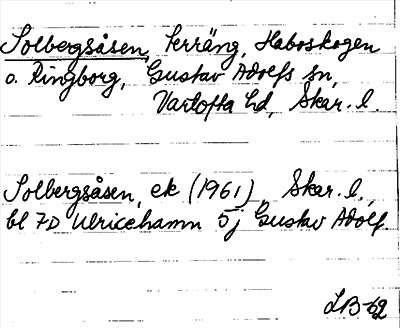 Solbergsåsen, terräng, Haboskogen
o. Ringborg, Gustav Adolfs sn,
Vartofta hd, Skar. l.
Solbergsåsen, ek (1961), Skar. l.,
bl 7D Ulricehamn 5j Gustav Adolf.
LB-62